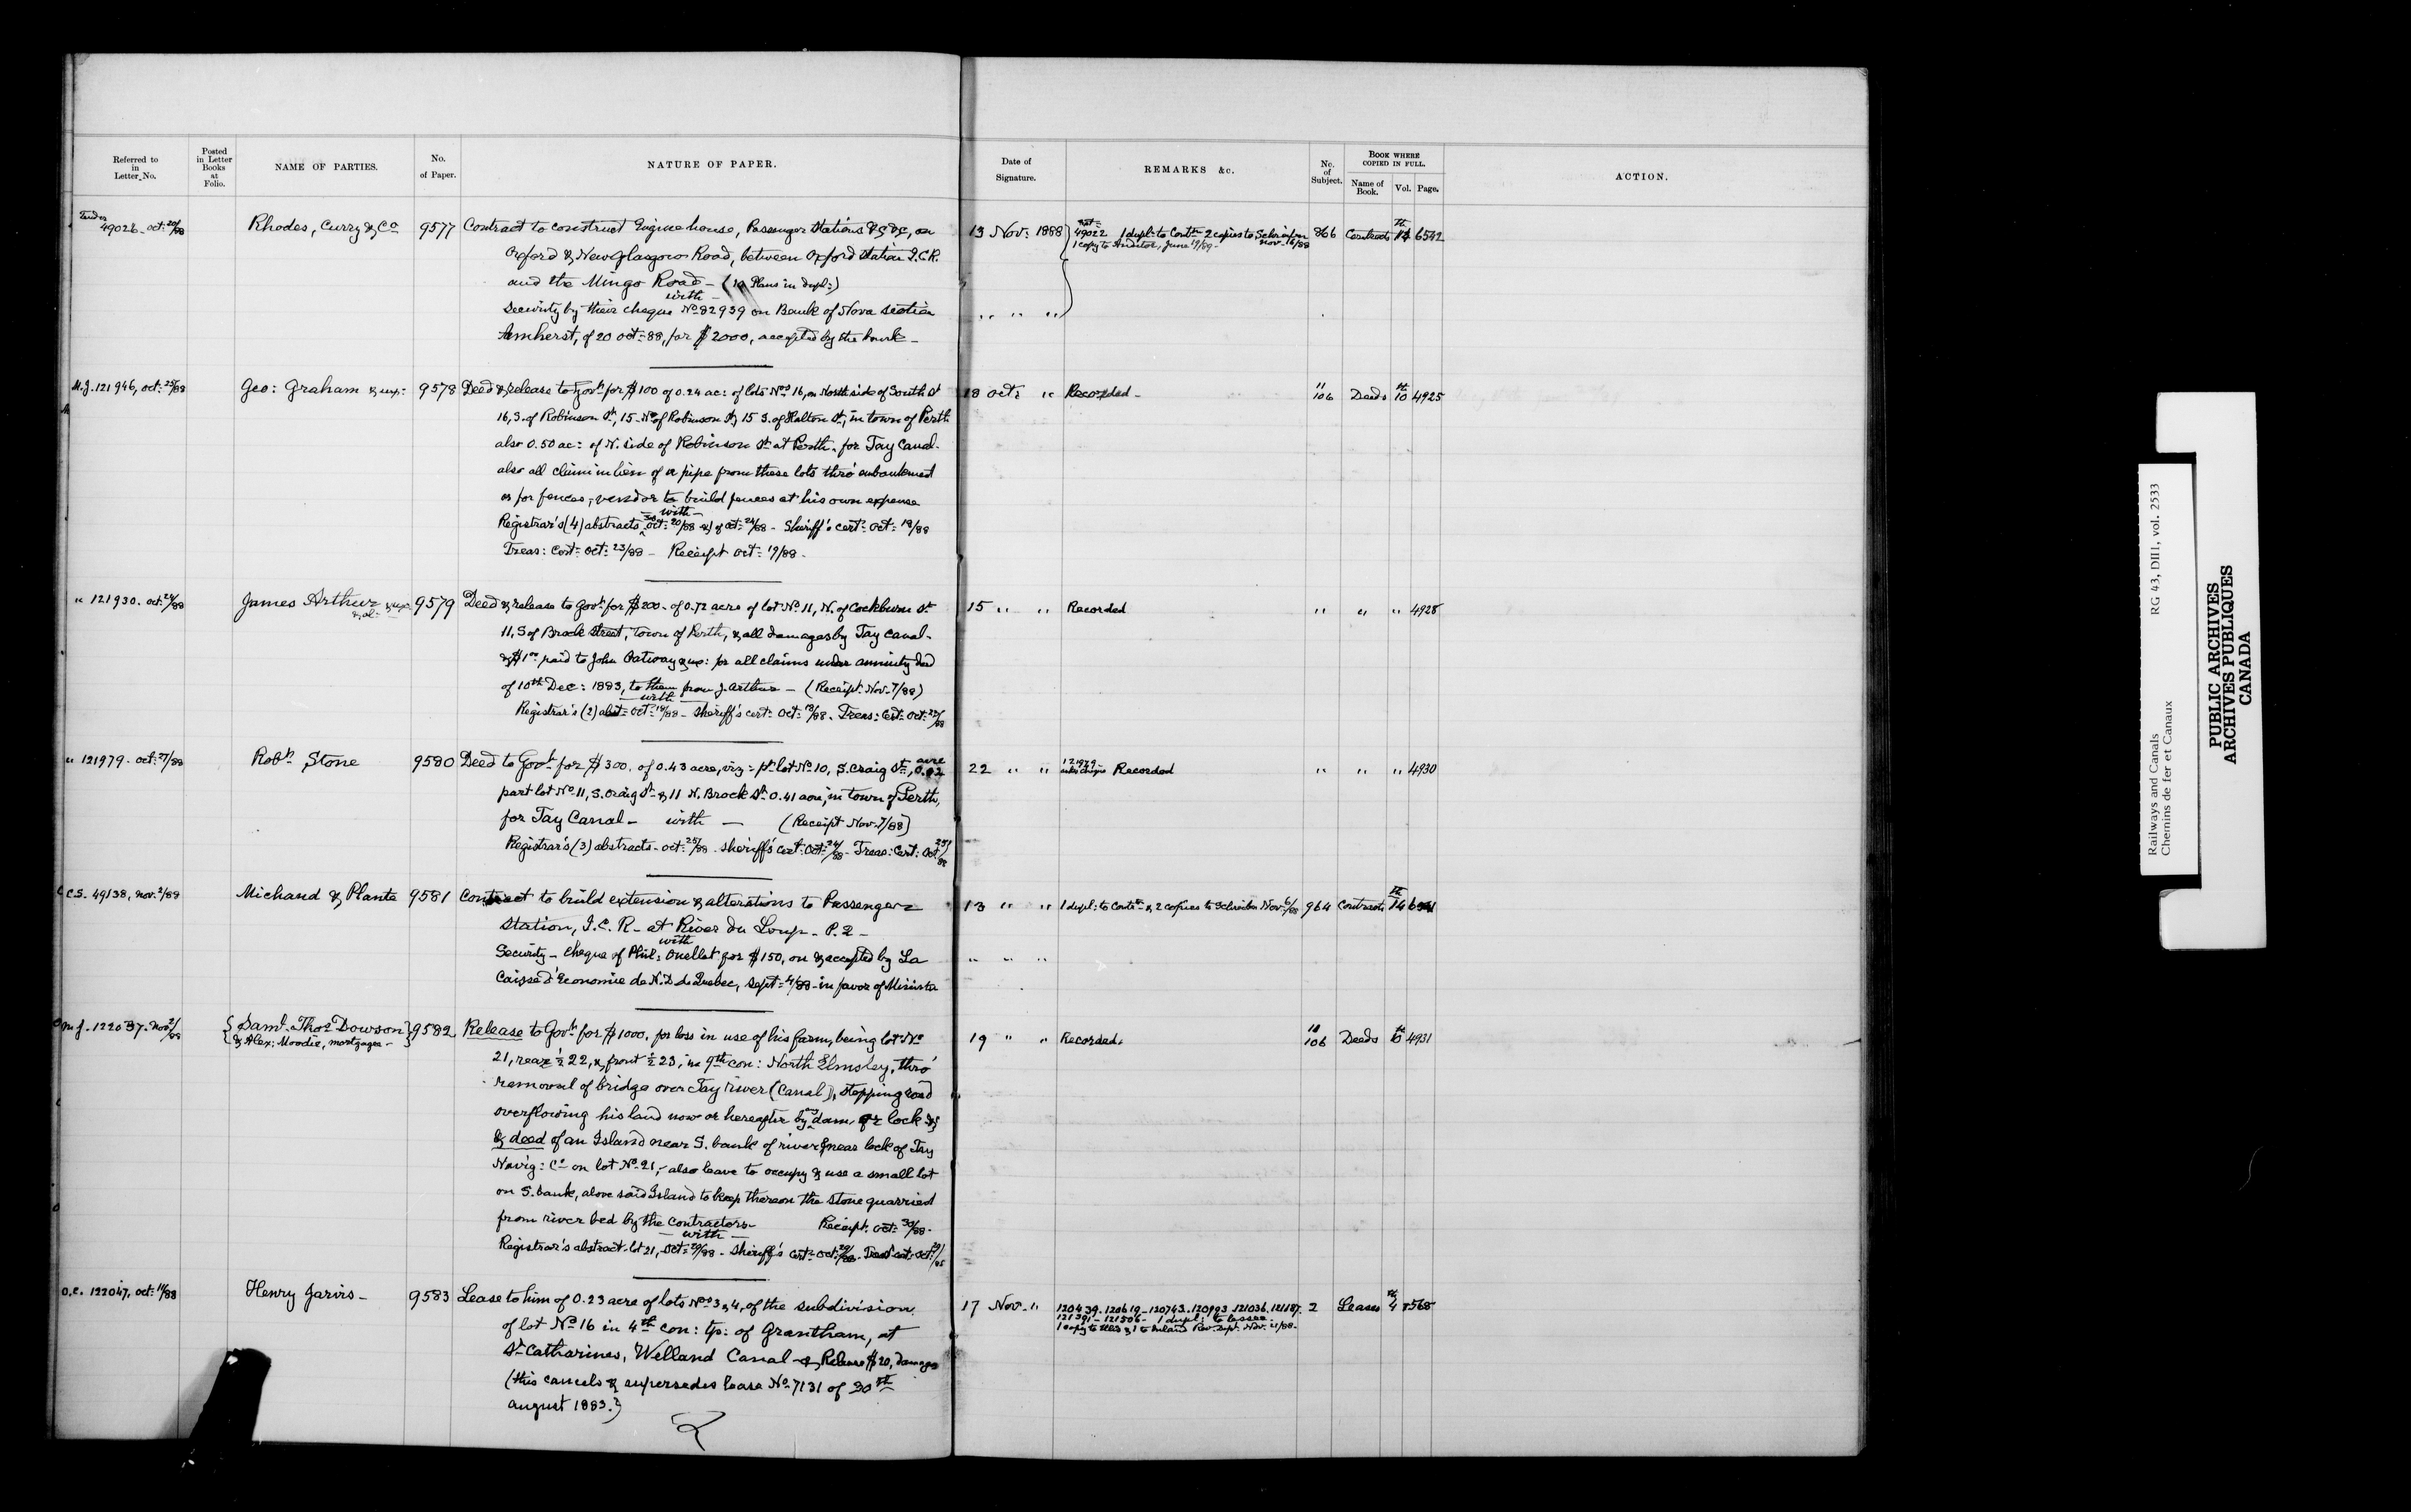 Referred to in Letter No.
Posted in Letter Books at Folio.
NAME OF PARTIES.
No. of Paper.
NATURE OF PAPER.
Date of Signature.
REMARKS &c.
No. of Subject.
BOOK WHERE COPIED IN FULL.
Name of Book.
Vol.
Page.
ACTION.
Tender 49026 - Oct: 20/88
Rhodes, Curry & Co
9577
Contract to construct Engine house, Passenger Stations &c &c, on
Oxford & New Glasgow Road, between Oxford Station I.C.R.
and the Mingo Road - (10 Plans in dept:)
with -
Security by their cheque No 82939 on Bank of Nova Scotia
Amherst, of 20 Oct: 88, for $2000, accepted by the bank -
13 Nov: 1888
49022 1 dupl: to Contr. 2 copies to Schreiber Nov. 16/88
1 copy to Auditor, June 19/89 -
866 Contracts 14 6542
M.J. 121946, Oct: 25/88
Geo: Graham & ux:
9578
Deed & release to Govt. for $100 of 0.24 ac: of lots Nos 16, on North side of South St
16, S. of Robinson St, 15 - N. of Robinson St, 15 S. of Halton St, in town of Perth
also 0.50 ac: of N. side of Robinson St at Perth. for Tay Canal -
also all claim in lieu of a pipe from these lots thro' embankment
or for fences, vendor to build fences at his own expense
- with -
Registrar's (4) abstracts, 3 of Oct: 20/88 & 1 of Oct: 24/88 - Sheriff's Cert: Oct: 18/88
Treas: Cert: Oct: 23/88 - Receipt Oct: 19/88 -
18 Oct: "
Recorded -
11 106 Deeds 10 4925
" 121930. Oct: 24/88
James Arthur & ux: & al:
9579
Deed & release to Govt. for $200 - of 0.72 acre of lot No 11, N. of Cockburn St
11, S of Brock Street, Town of Perth, & all damages by Tay Canal -
& $1.00 paid to John Oatway & ux: for all claims under annuity deed
of 10th Dec: 1883, to them from J. Arthur - (Receipt. Nov. 7/88)
- with -
Registrar's (2) abst: Oct: 18/88 - Sheriff's cert: Oct: 18/88. Treas: Cert: Oct: 22/88
15 " "
Recorded
" " " 4928
" 121979 - Oct: 27/88
Robt. Stone
9580
Deed to Govt. for $300. of 0.43 acre, viz: pt. lot No 10, S. Craig St, 0.02 acre
part lot No 11, S. Craig St & 11 N. Brock St 0.41 acre, in town of Perth,
for Tay Canal - with - (Receipt Nov. 7/88)
Registrar's (3) abstracts - Oct: 25/88. Sheriff's cert: Oct: 24/88 - Treas: Cert: Oct: 25/88
22 " "
121979 - Recorded
" " " 4930
C.S. 49138, Nov: 2/88
Michaud & Plante
9581
Contract to build extension & alterations to Passenger
Station, I.C.R. - at River du Loup - P.Q -
with
Security - cheque of Phil: Ouellet for $150, on & accepted by La
Caisse d'Economie de N.D de Quebec, Sept: 4/88 - in favor of Minister
13 " "
1 dupl: to Contr. & 2 copies to Schreiber Nov. 6/88
964 Contracts 14
M.J. 122037. Nov: 2/88
Saml. Thos Dowson
& Alex: Moodie, mortgagee -
9582
Release to Govt. for $1000, for loss in use of his farm, being lot No
21, rear ½ 22, & front ½ 23, in 9th con: North Elmsley, thro'
removal of bridge over Tay river (Canal), stopping road
overflowing his land now or hereafter by any dam, or lock &c
& deed of an Island near S. bank of river & near lock of Tay
Navig: Co on lot No 21, - also leave to occupy & use a small lot
on S. bank, above said Island to keep thereon the stone quarried
from river bed by the contractors - Receipt. Oct: 30/88 -
- with -
Registrar's abstract - lot 21, Oct: 29/88 - Sheriff's Cert: Oct: 29/88. Treas: cert: Oct: 29/88
19 " "
Recorded.
11 106 Deeds 10 4931
O.C. 122047, Oct: 11/88
Henry Jarvis -
9583
Lease to him of 0.23 acre of lots Nos 3 & 4, of the subdivision
of lot No 16 in 4th con: tp: of Grantham, at
St Catharines, Welland Canal - & Release $20, damages
(this cancels & supersedes lease No 7131 of 30th
August 1883.)
17 Nov. "
120439. 120619 - 120743. 120993. 121036. 121187.
121391 - 121506 - 1 dupl: to lessee -
1 copy to Ellis & 1 to Inland Rev. Dept. Nov. 21/88 -
2 Leases 4 8568
Railways and Canals RG 43, DIII, vol. 2533
Chemins de fer et Canaux
PUBLIC ARCHIVES
ARCHIVES PUBLIQUES
CANADA